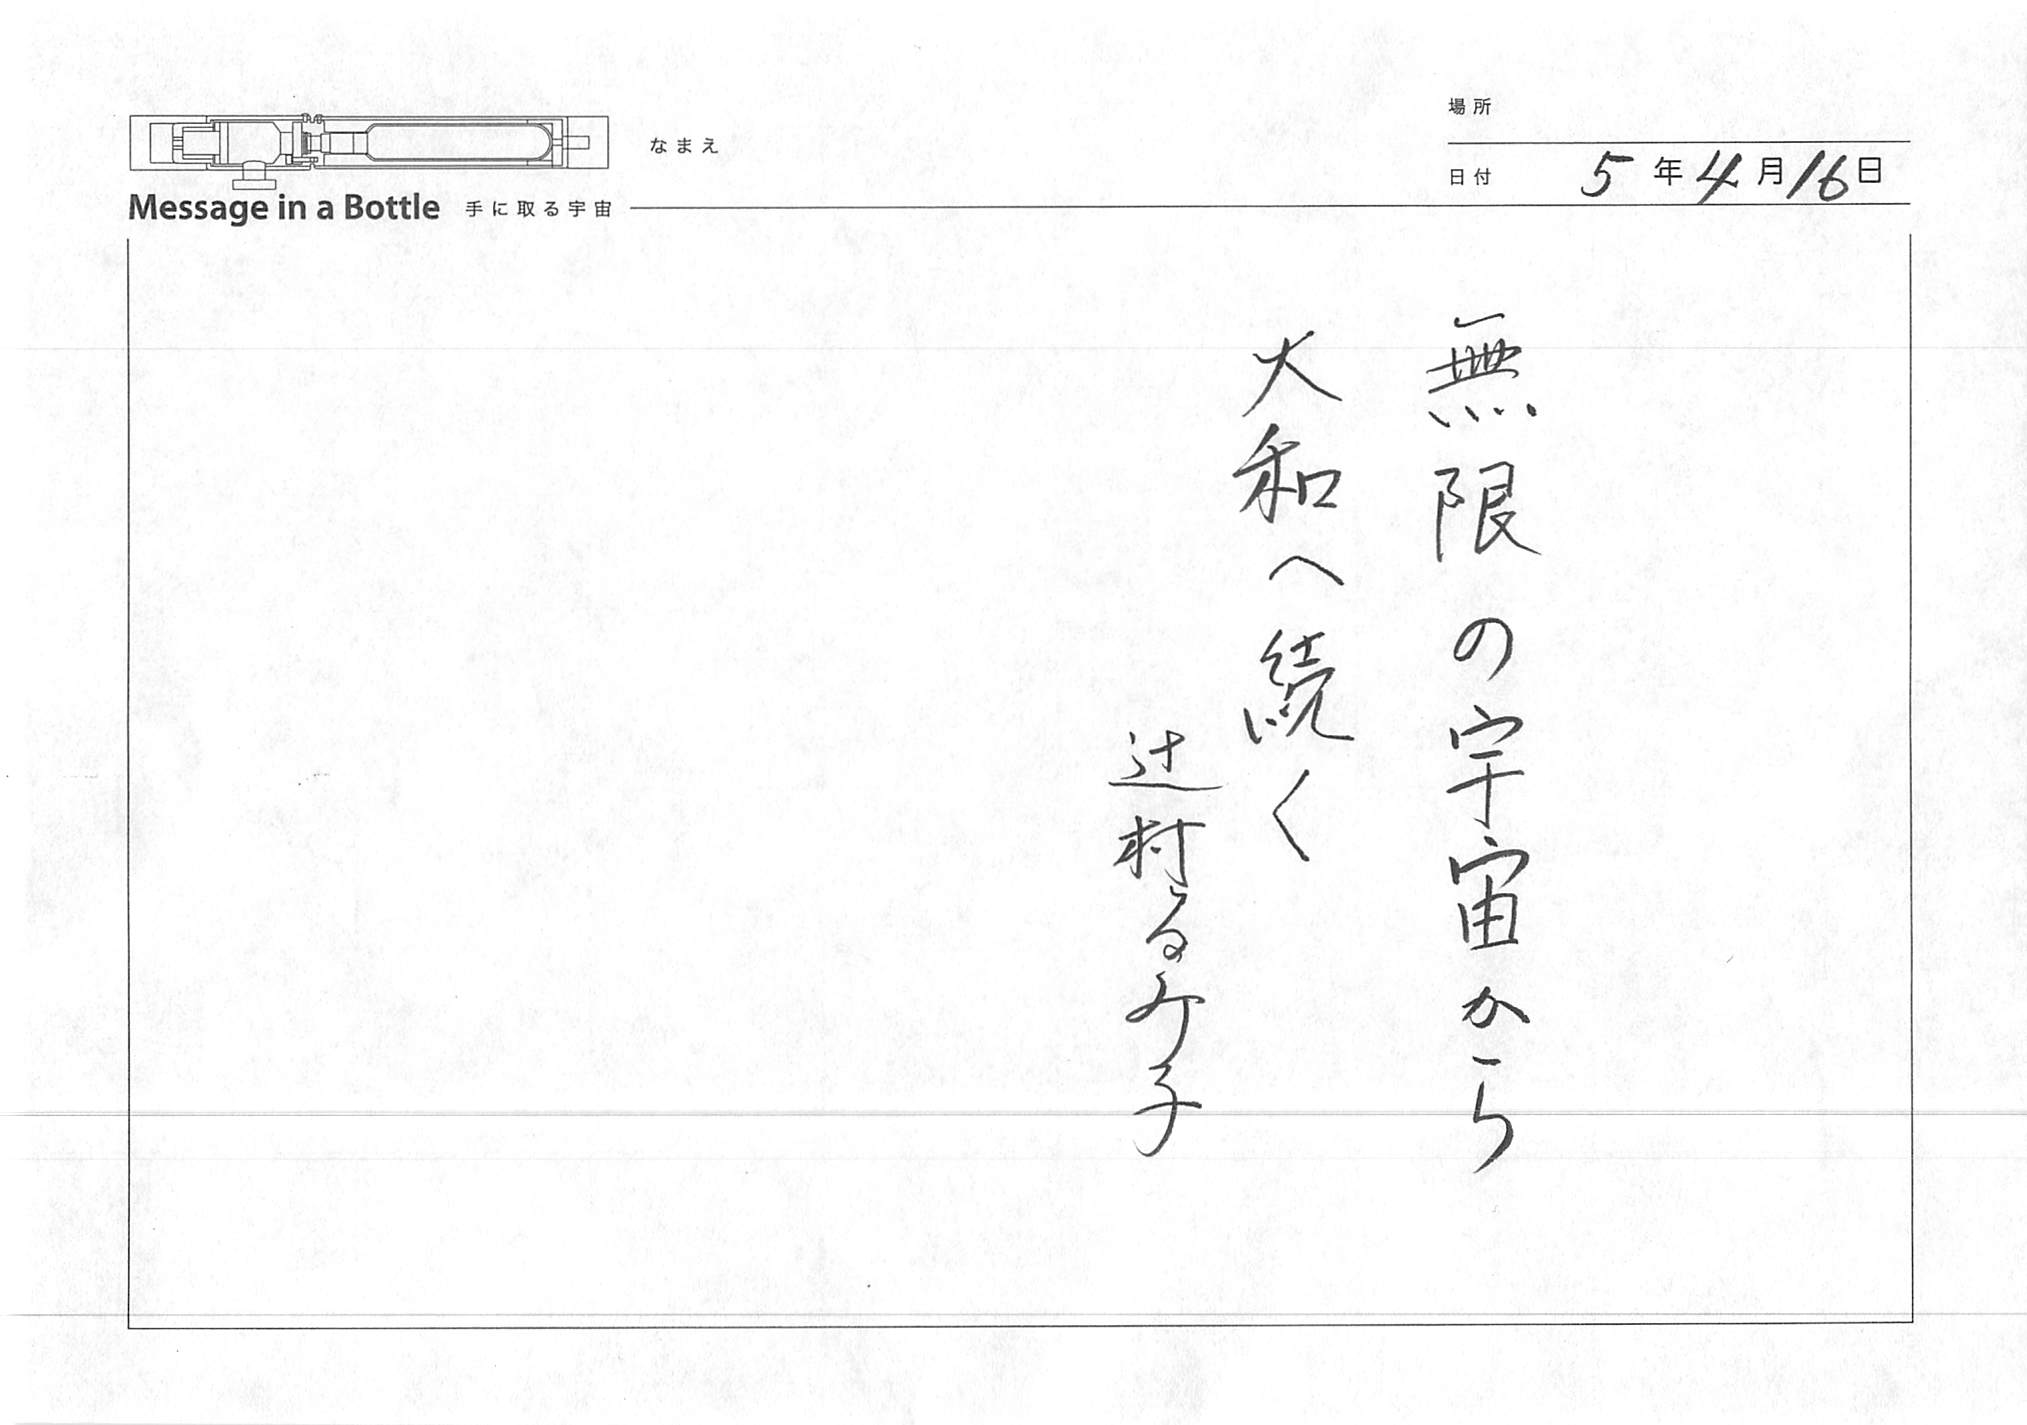 場所
なまえ
日付 5年4月16日
Message in a Bottle 手に取る宇宙
無限の宇宙から
大和へ続く
辻村るみ子